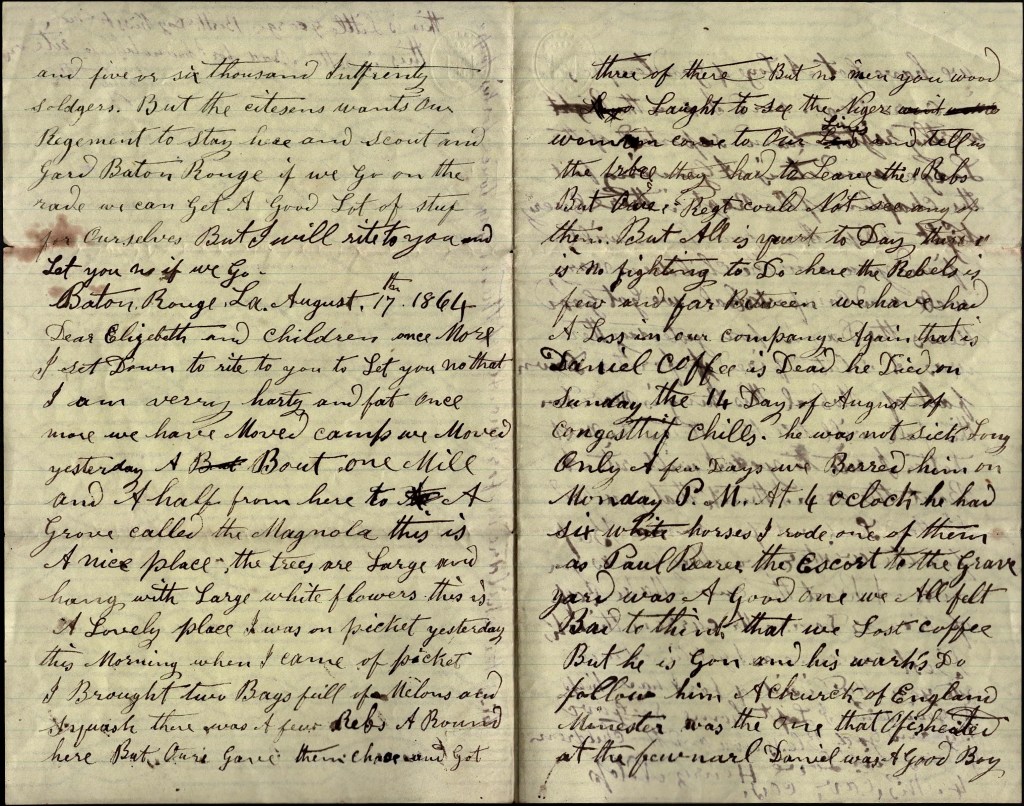 and five or six thousand Intfrenty
soldgers. But the citesens wants Our
Regement to Stay here and scout and
Gard Baton Rouge if we Go on the
rade we can Get A Good Lot of stuf
for Ourselves But I will rite to you and
Let you no if we Go.
Baton, Rouge, La. August, 17th. 1864
Dear Elizebeth and children once More
I set Down to rite to you to Let you no that
I am verry harty and fat once
more we have Moved camp we Moved
yesterday A Bout one Mill
and A half from here to A
Grove called the Magnola this is
A nice place the trees are Large and
hang with Large white flowers this is
A Lovely place I was on picket yesterday
this Morning when I came of picket
I Brought two Bags full of Milons and
squash there was A few Rebs A Round
here But Ours Gave them chace and Got
three of there But no men you wood
Laught to see the Niger
women come to Our Lines and tell us
the they had to Leave the Rebs
But Our Regt could Not see any of
them. But All is quiet to Day there
is no fighting to Do here the Rebels is
few and far Between we have had
A Loss in our company Again that is
Daniel Coffee is Dead he Died on
Sunday the 14 Day of August of
congesttif chills. he was not sick Long
Only A few Days we Berred him on
Monday P. M. At 4 oclock he had
six white horses I rode one of them
as Paul Bearee the Escort to the Grave
yard was A Good one we All felt
Bad to think that we Lost coffee
But he is Gon and his warks Do
follow him A church of England
Minester was the One that Ofisheated
at the fewnarl Daniel was A Good Boy